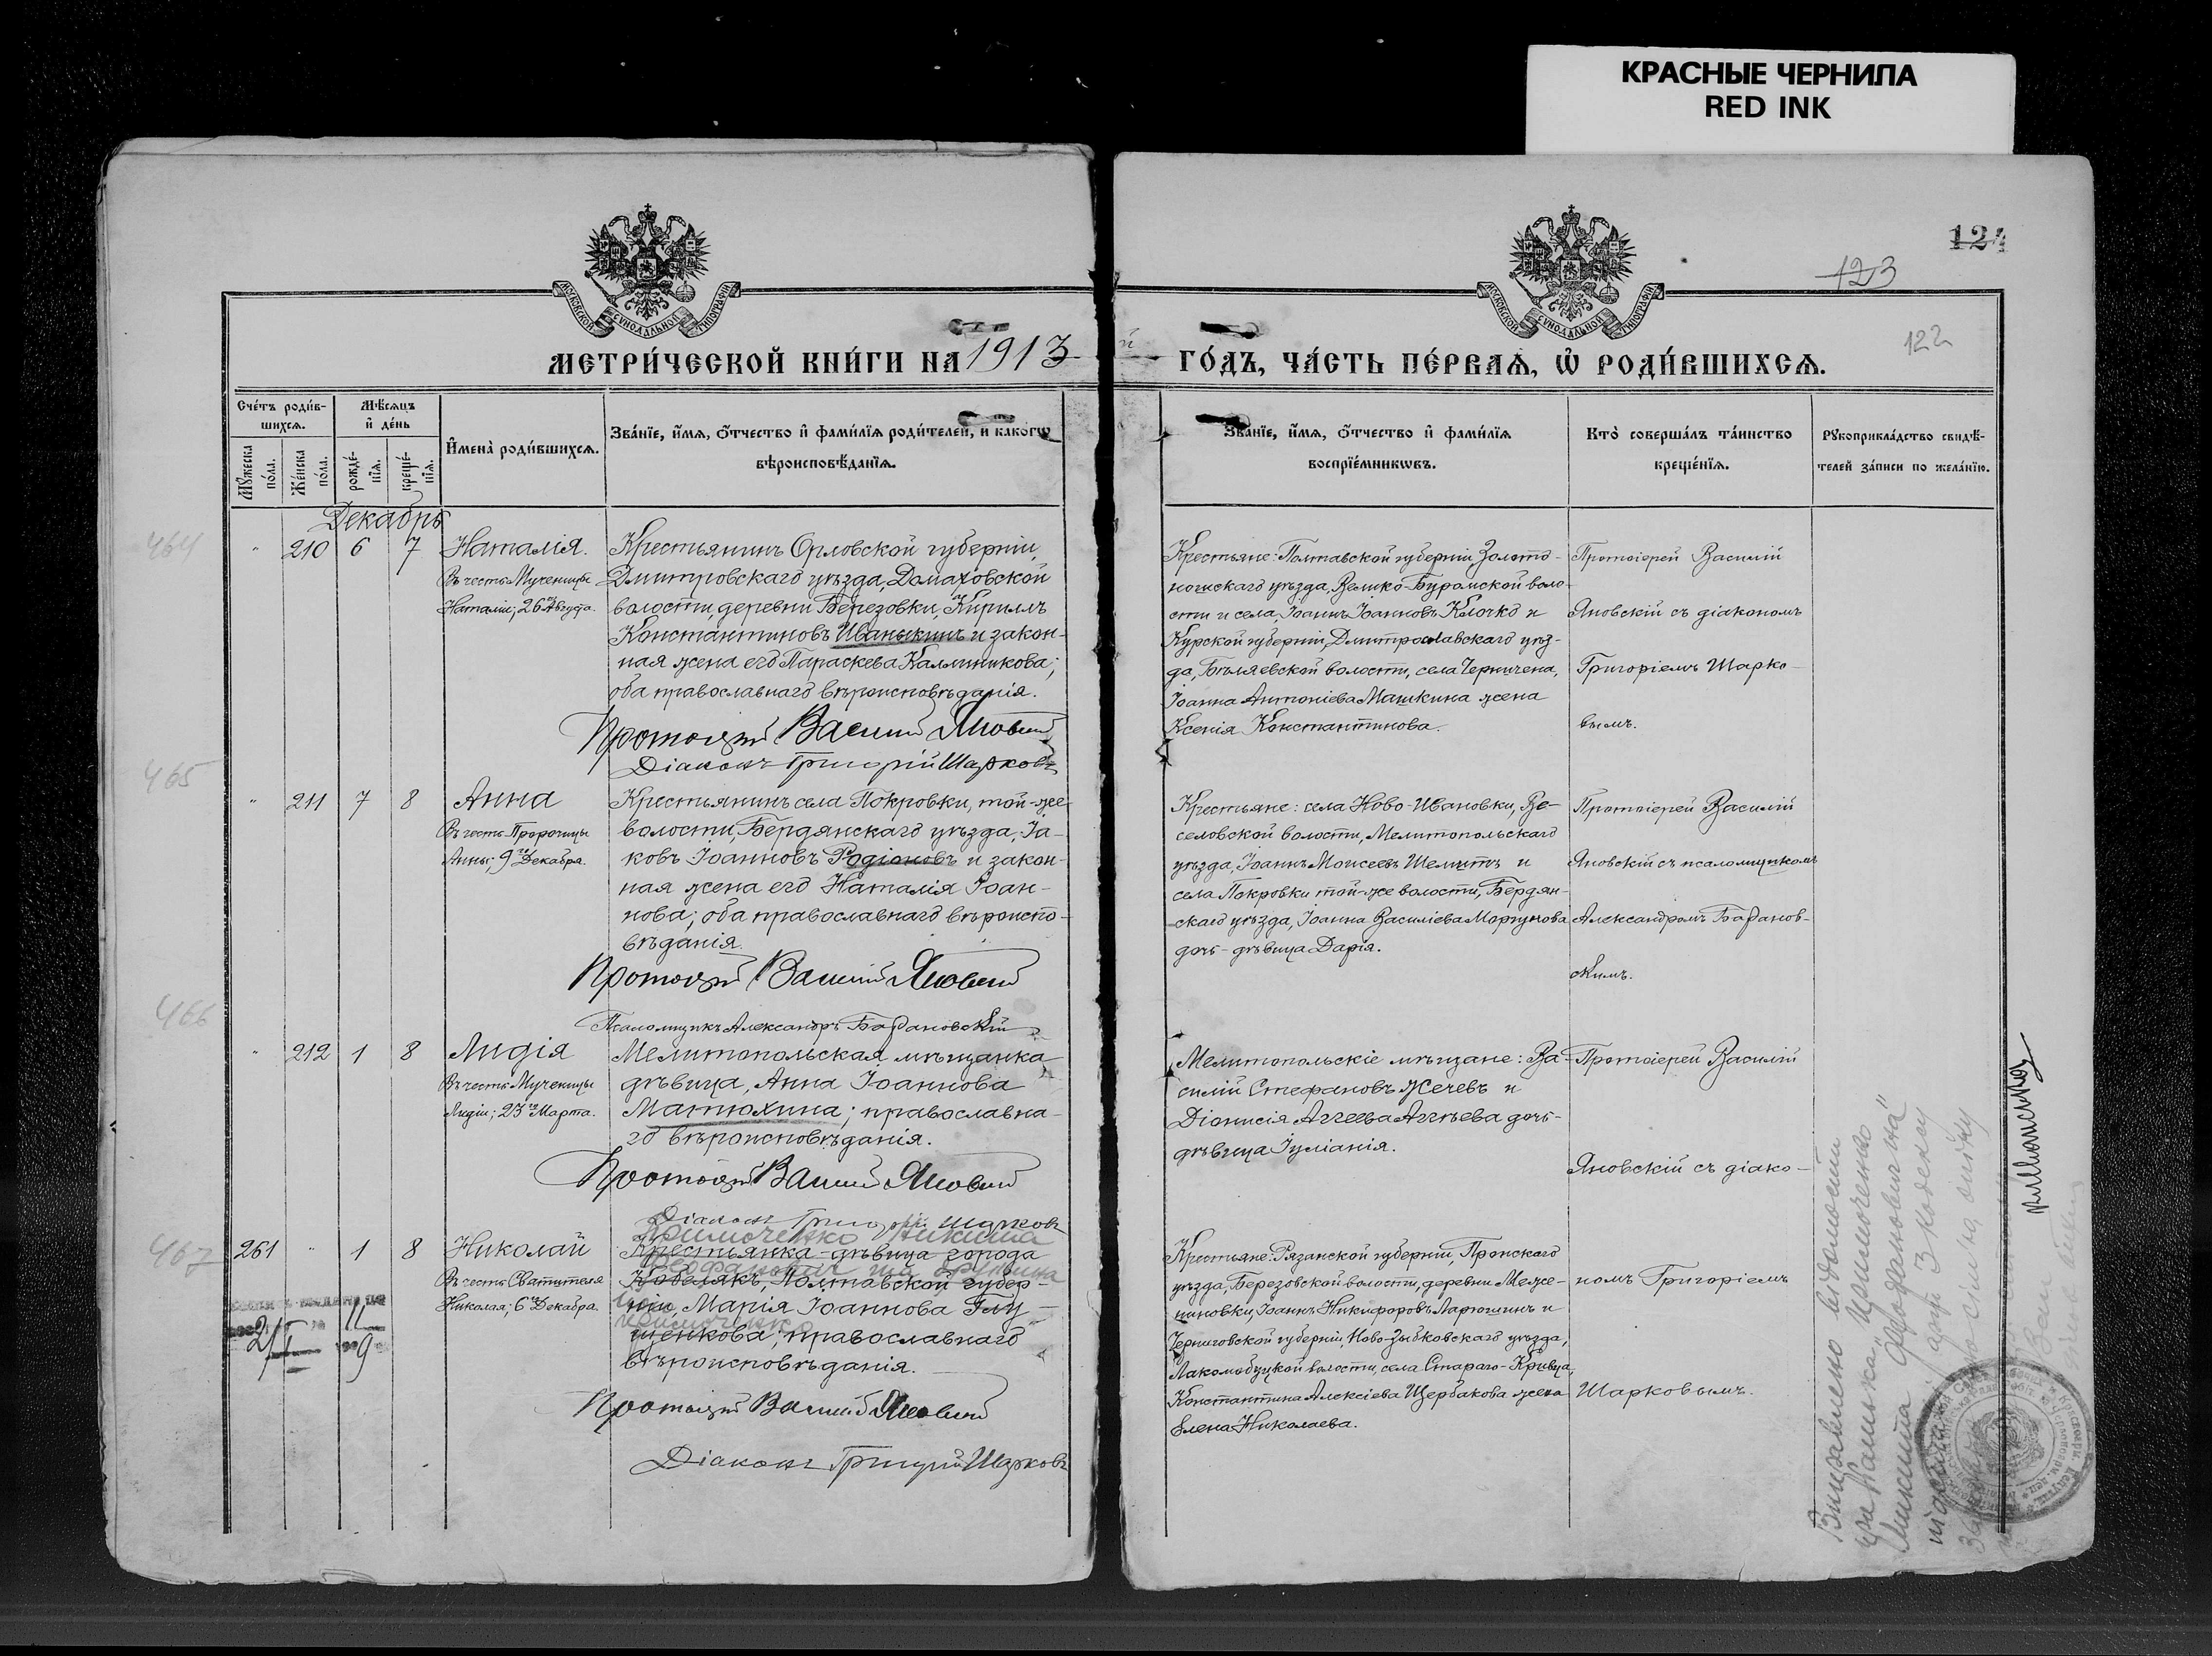 КРАСНЫЕ ЧЕРНИЛА
RED INK
124
123
122
МОСКОВСКОЙ СѴНОДАЛЬНОЙ ТИПОГРАФІИ
МЕТРИ́ЧЕСКОЙ КНИ́ГИ НА 1913
МОСКОВСКОЙ СѴНОДАЛЬНОЙ ТИПОГРАФІИ
й ГО́ДЪ, ЧА́СТЬ ПЕ́РВАѦ, Ѡ҆ РОДИ́ВШИХСѦ.
Сче́тъ роди́в-
шихсѧ.
Мꙋ́жеска
по́ла.
Же́нска
по́ла.
Мѣ́сѧцъ
и҆ де́нь
рожде́-
нїѧ.
креще́-
нїѧ.
И҆мена̀ роди́вшихсѧ.
Зва́нїе, и҆́мѧ, ѻ҆́тчество и҆ фами́лїѧ роди́телей, и како́гѡ
вѣроисповѣ́данїѧ.
Зва́нїе, и҆́мѧ, ѻ҆́тчество и҆ фами́лїѧ
воспрїе́мникѡвъ.
Кто̀ соверша́лъ та́инство
креще́нїѧ.
Рꙋкоприкла́дство свидѣ́-
телей за́писи по жела́нїю.
Декабрь
464
" 210 6 7
Наталія.
Въ честь Мученицы
Наталіи; 26го Августа.
Крестьянинъ Орловской губерніи,
Дмитровскаго уѣзда, Домаховской
волости, деревни Березовки, Кириллъ
Константиновъ Иванькинъ и закон-
ная жена его Параскева Каллиникова;
оба православнаго вѣроисповѣданія.
Протоіерей Василій Яновскій
Діаконъ Григорій Шарковъ
Крестьяне: Полтавской губерніи, Золото-
ношскаго уѣзда, Велико-Бурмской воло-
сти и села, Іоаннъ Іоанновъ Клочко и
Курской губерніи, Дмитрославскаго уѣз-
да, Бѣляевской волости, села Черничена,
Іоанна Антоніева Машкина жена
Ксенія Константинова.
Протоіерей Василій
Яновскій съ діакономъ
Григоріемъ Шарко-
вымъ.
465
" 211 7 8
Анна
Въ честь Пророчицы
Анны; 9го Декабря.
Крестьянинъ села Покровки, той-же
волости, Бердянскаго уѣзда, Іа-
ковъ Іоанновъ Родіоновъ и закон-
ная жена его Наталія Іоан-
нова; оба православнаго вѣроиспо-
вѣданія.
Протоіерей Василій Яновскій
Псаломщикъ Александръ Барановскій
Крестьяне: села Ново-Ивановки, Ве-
селовской волости, Мелитопольскаго
уѣзда, Іоаннъ Моисеевъ Шелитъ и
села Покровки той-же волости, Бердян-
скаго уѣзда, Іоанна Василіева Моргунова
дочь-дѣвица Дарія.
Протоіерей Василій
Яновскій съ псаломщикомъ
Александромъ Баранов-
скимъ.
466
" 212 1 8
Лидія
Въ честь Мученицы
Лидіи; 23го Марта.
Мелитопольская мѣщанка
дѣвица, Анна Іоаннова
Матюхина; православна-
го вѣроисповѣданія.
Протоіерей Василій Яновскій
Діаконъ Григорій Шарковъ
Мелитопольскіе мѣщане: Ва-
силій Стефановъ Жечевъ и
Діонисія Аггеева Аггѣева дочь-
дѣвица Іуліанія.
Протоіерей Василій
Яновскій съ діако-
467
261 " 1 8
Николай
Въ честь Святителя
Николая; 6го Декабря.
Примоченко Микита
Крестьянка-дѣвица города
Кобелякъ, Полтавской губер-
ніи, Марія Іоаннова Глу-
щенкова; православнаго
вѣроисповѣданія.
Протоіерей Василій Яновскій
Діаконъ Григорій Шарковъ
Крестьяне: Рязанской губерніи, Пронскаго
уѣзда, Березовской волости, деревни Меже-
ниновки, Іоаннъ Никифоровъ Ларюшинъ и
Черниговской губерніи, Ново-Зыбковскаго уѣзда,
Лакомобудской волости, села Стараго-Кривца,
Константина Алексіева Щербакова жена
Елена Николаева.
номъ Григоріемъ
Шарковымъ.
Виправлено відомости